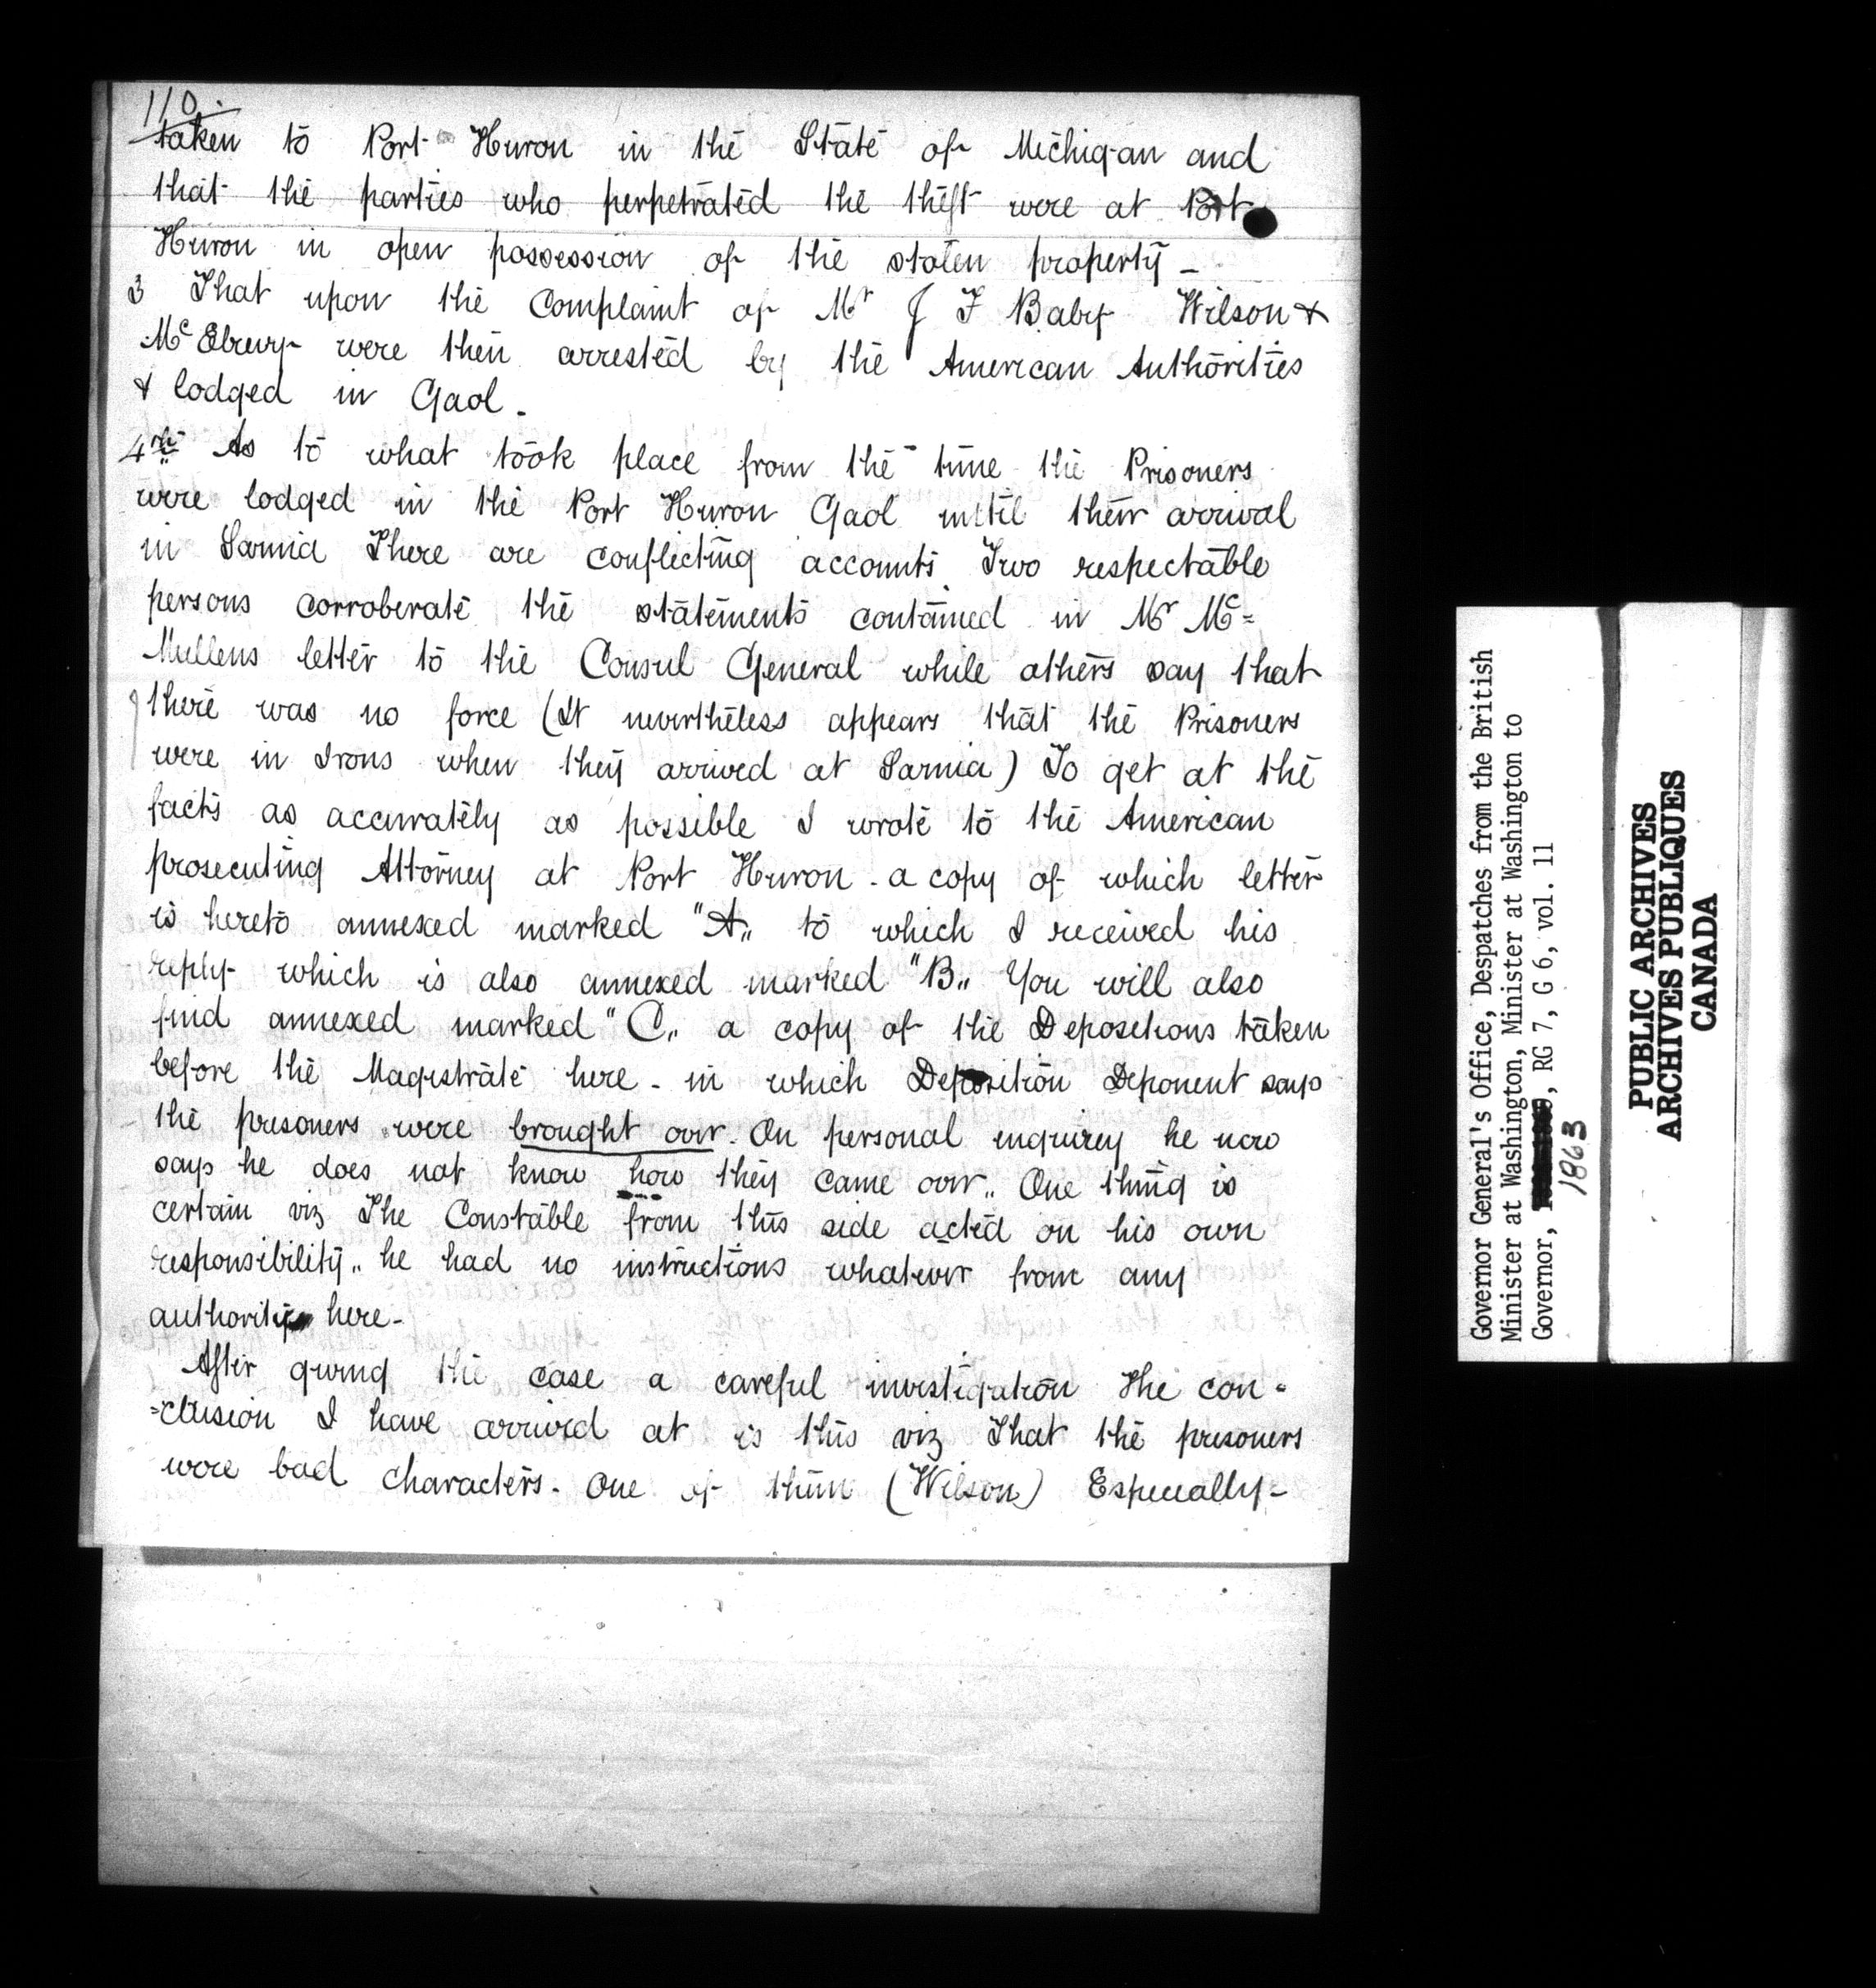 110.
taken to Port Huron in the State of Michigan and
that the parties who perpetrated the theft were at Port
Huron in open possession of the stolen property -
3 That upon the Complaint of Mr J F Baby Wilson &
McElrury were then arrested by the American Authorities
& lodged in Gaol.
4th As to what took place from the time the Prisoners
were lodged in the Port Huron Gaol until their arrival
in Sarnia There are conflicting accounts Two respectable
persons corroberate the statements contained in Mr Mc=
Mullens letter to the Consul General while others say that
there was no force (It nevertheless appears that the Prisoners
were in Irons when they arrived at Sarnia) To get at the
facts as accurately as possible I wrote to the American
prosecuting Attorney at Port Huron - a copy of which letter
is hereto annexed marked "A„ to which I received his
reply which is also annexed marked "B„ You will also
find annexed marked "C„ a copy of the Depositions taken
before the Magistrate here - in which Deposition Deponent says
the prisoners were brought over. On personal inquirey he now
says he does not know how they came over„ One thing is
certain viz The Constable from this side acted on his own
responsibility„ he had no instructions whatever from any
authority here -
After giving the case a careful investigation The con=
=clusion I have arrived at is this viz That the prisoners
were bad characters. One of them (Wilson) Especially -
Governor General's Office, Despatches from the British
Minister at Washington, Minister at Washington to
Governor, RG 7, G 6, vol. 11
1863
PUBLIC ARCHIVES
ARCHIVES PUBLIQUES
CANADA